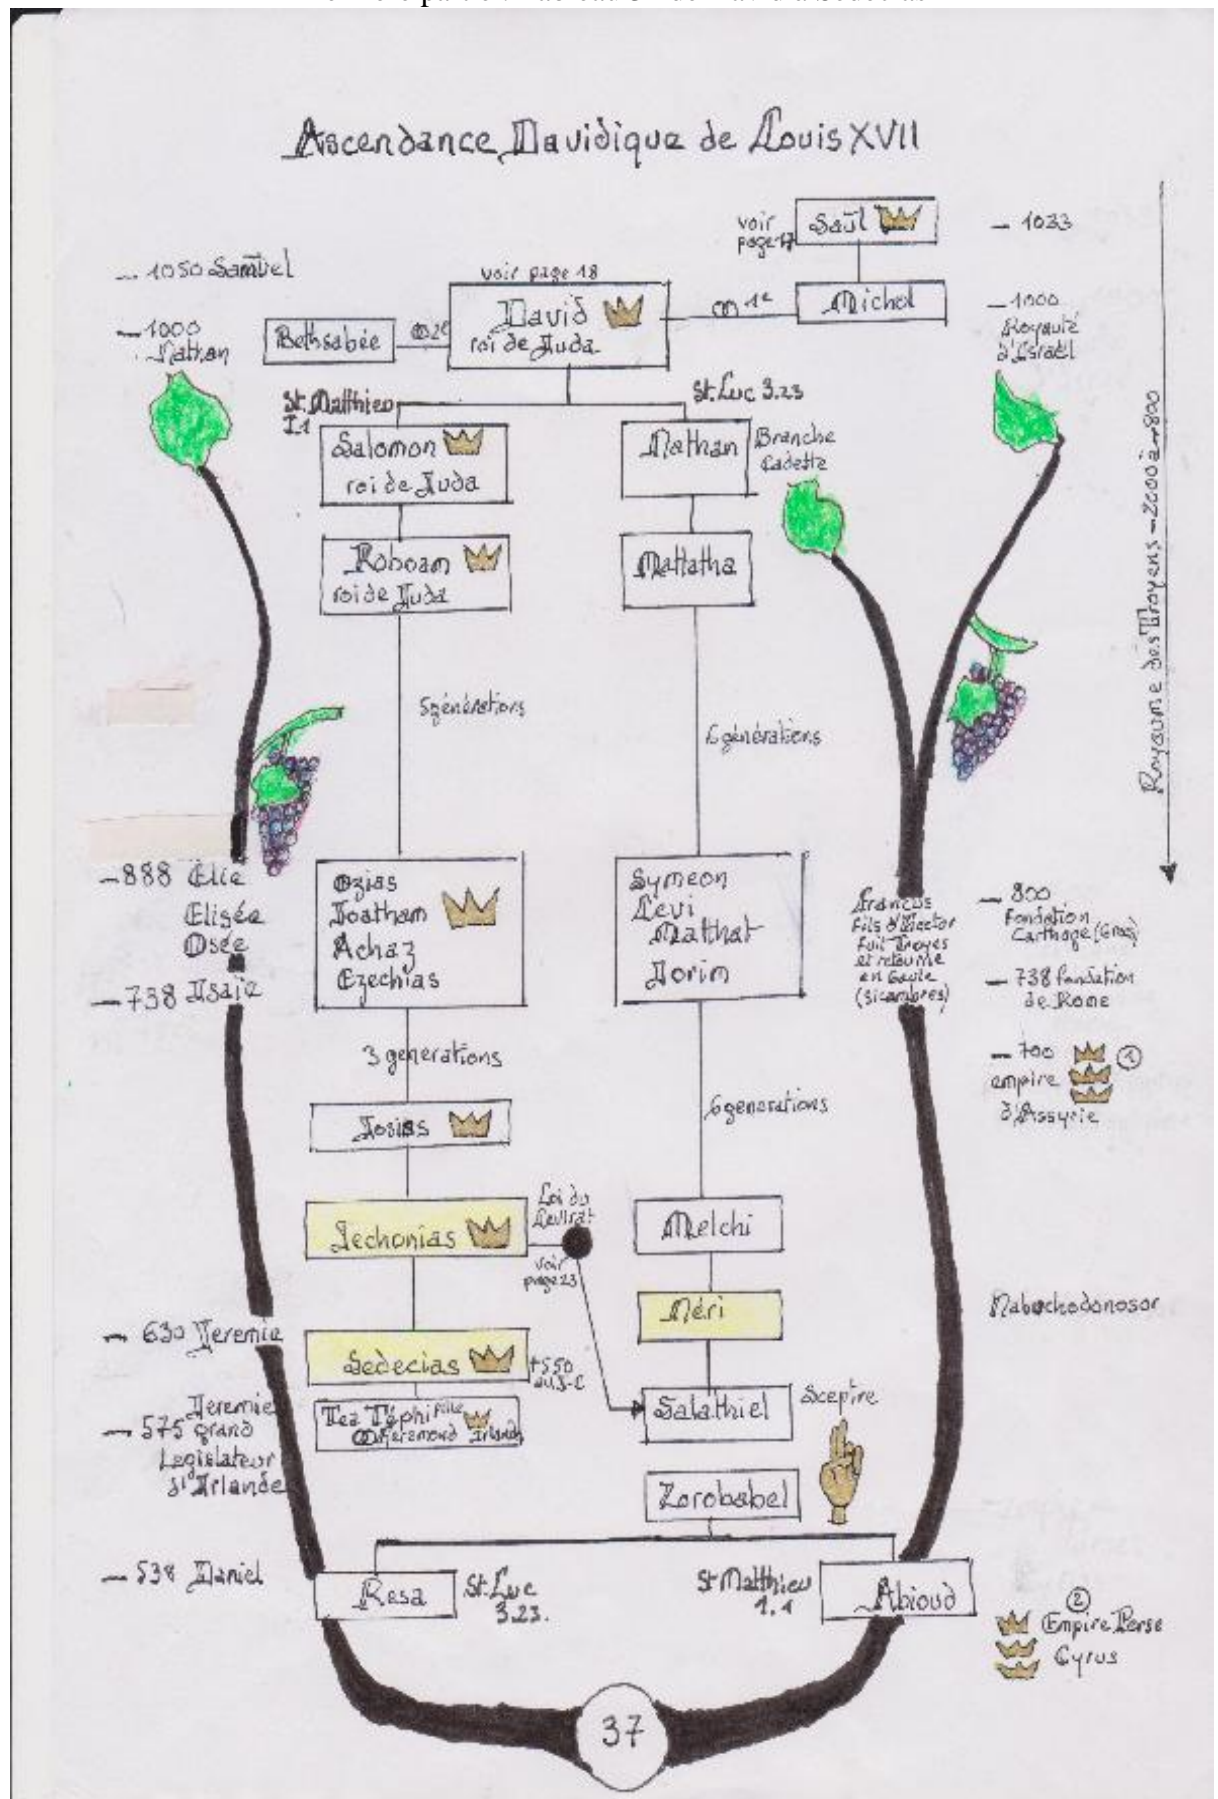 Ascendance Davidique de Louis XVII
voir
page 17
Saül
— 1033
— 1050 Samuel
voir page 18
David
roi de Juda
∞ 1e
Michol
— 1000
Royauté
d'Israël
— 1000
Nathan
Bethsabée
∞ 2e
St. Matthieu
I.1
St. Luc 3.23
Salomon
roi de Juda
Nathan
Branche
Cadette
Roboam
roi de Juda
Mattatha
Royaume des Troyens — 2000 à — 800
5 générations
6 générations
— 888 Élie
Elisée
Osée
— 738 Isaïe
Ozias
Joatham
Achaz
Ezechias
Symeon
Levi
Matthat
Jorim
Francus
Fils d'Hector
fuit Troyes
et retourne
en Gaule
(Sicambres)
— 800
Fondation
Carthage
— 738 Fondation
de Rome
3 generations
— 700 1
empire
d'Assyrie
6 generations
Josias
Jechonias
Loi du
Levirat
voir
page 23
Melchi
Néri
Nabuchodonosor
— 630 Jeremie
Sedecias
+550
av. J-C
Jeremie
— 575 grand
Legislateur
d'Irlande
Tea Téphi fille
Irlande
Salathiel
Sceptre
Zorobabel
— 538 Daniel
Resa
St. Luc
3.23.
St Matthieu
1.1
Abioud
2
Empire Perse
Cyrus
37